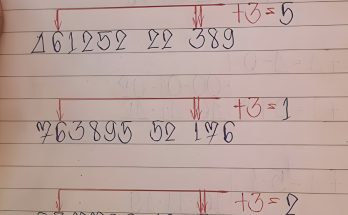 +3=5
161252 22 389
+3=1
763895 52 176
+3=2